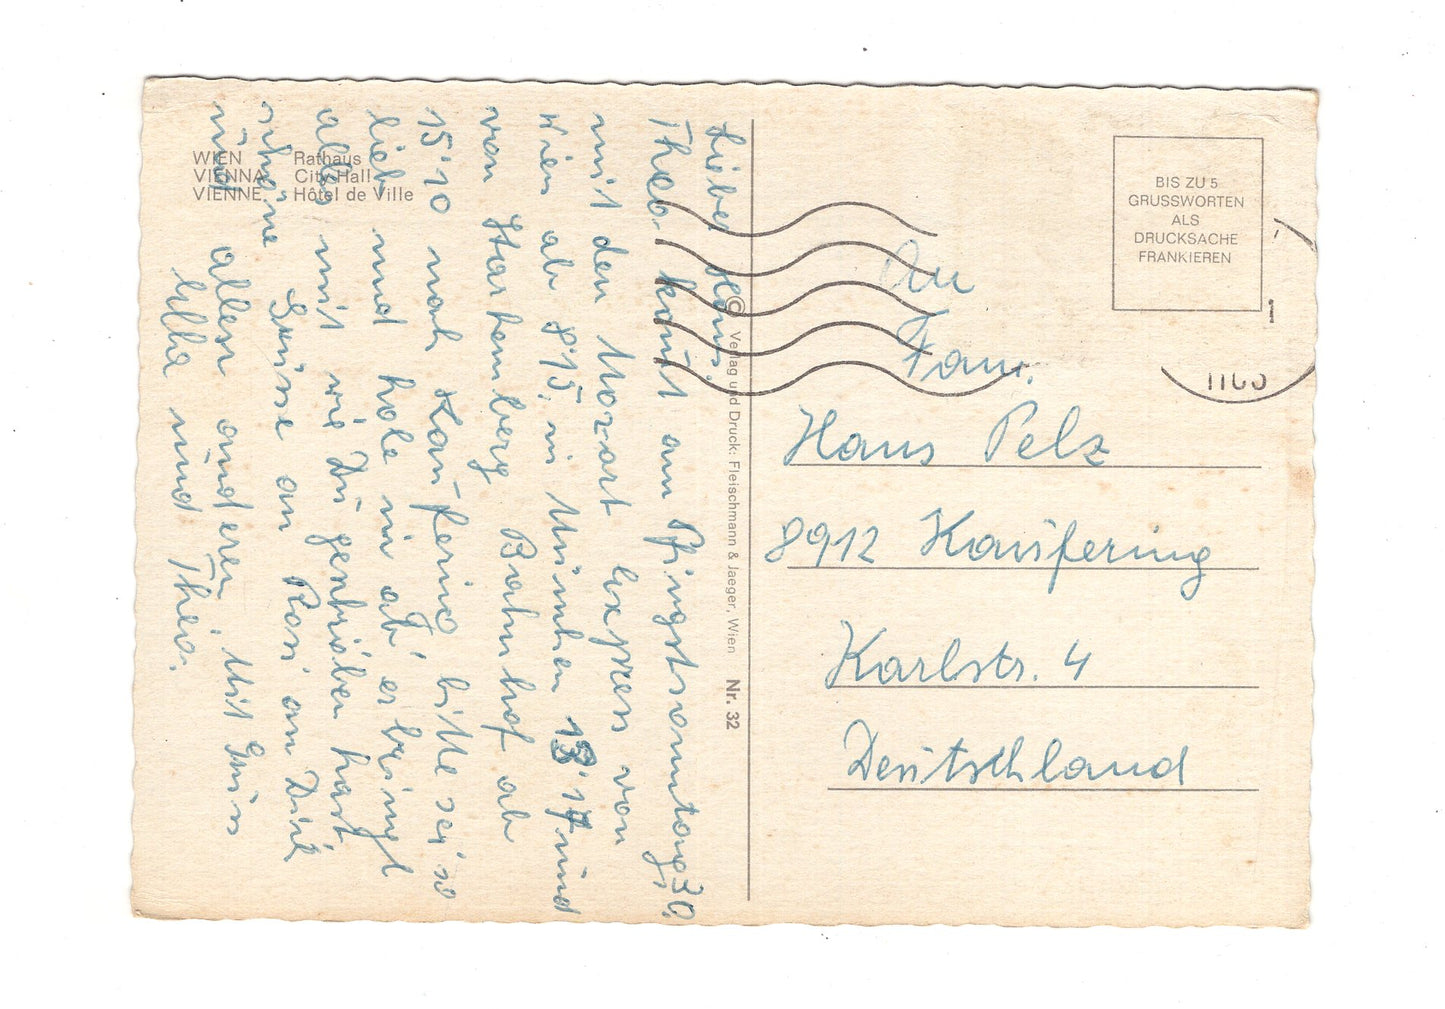 WIEN Rathaus
VIENNA City Hall
VIENNE Hôtel de Ville
Lieber Hans!
Theo. komt am Pfingstsamtag 30.
mit den Mozart Expres von
Wien ab 8'15, in München 13'17 und
von Starhemberg Bahnhof ab
15'10 nach Kaufering bitte sei so
lieb und hole in ab er bringt
alles mit wie Du geschriben hast
schöne Grüse an Rosi an Dich
und allen anderen Mit Gruss
Milla und Theo.
© Verlag und Druck: Fleischmann & Jaeger, Wien Nr. 32
BIS ZU 5
GRUSSWORTEN
ALS
DRUCKSACHE
FRANKIEREN
An
Fam.
Hans Pelz
8912 Kaufering
Karlstr. 4
Deutschland